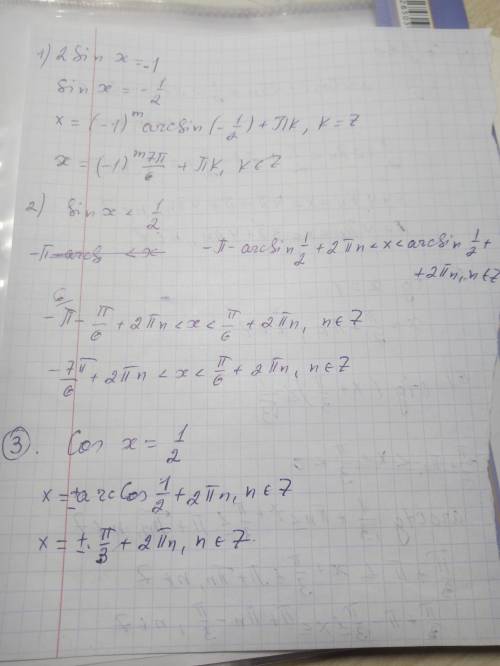 1) 2 sin x = -1
sin x = - 1/2
x = (-1)^m arcsin (- 1/2) + πk, k = Z
x = (-1)^m 7π/6 + πk, k ∈ Z
2) sin x < 1/2
-π - arcsin 1/2 + 2πn < x < arcsin 1/2 +
+ 2πn, n ∈ Z
- π - π/6 + 2πn < x < π/6 + 2πn, n ∈ Z
- 7π/6 + 2πn < x < π/6 + 2πn, n ∈ Z
3. Cos x = 1/2
x = ± arccos 1/2 + 2πn, n ∈ Z
x = ± π/3 + 2πn, n ∈ Z.